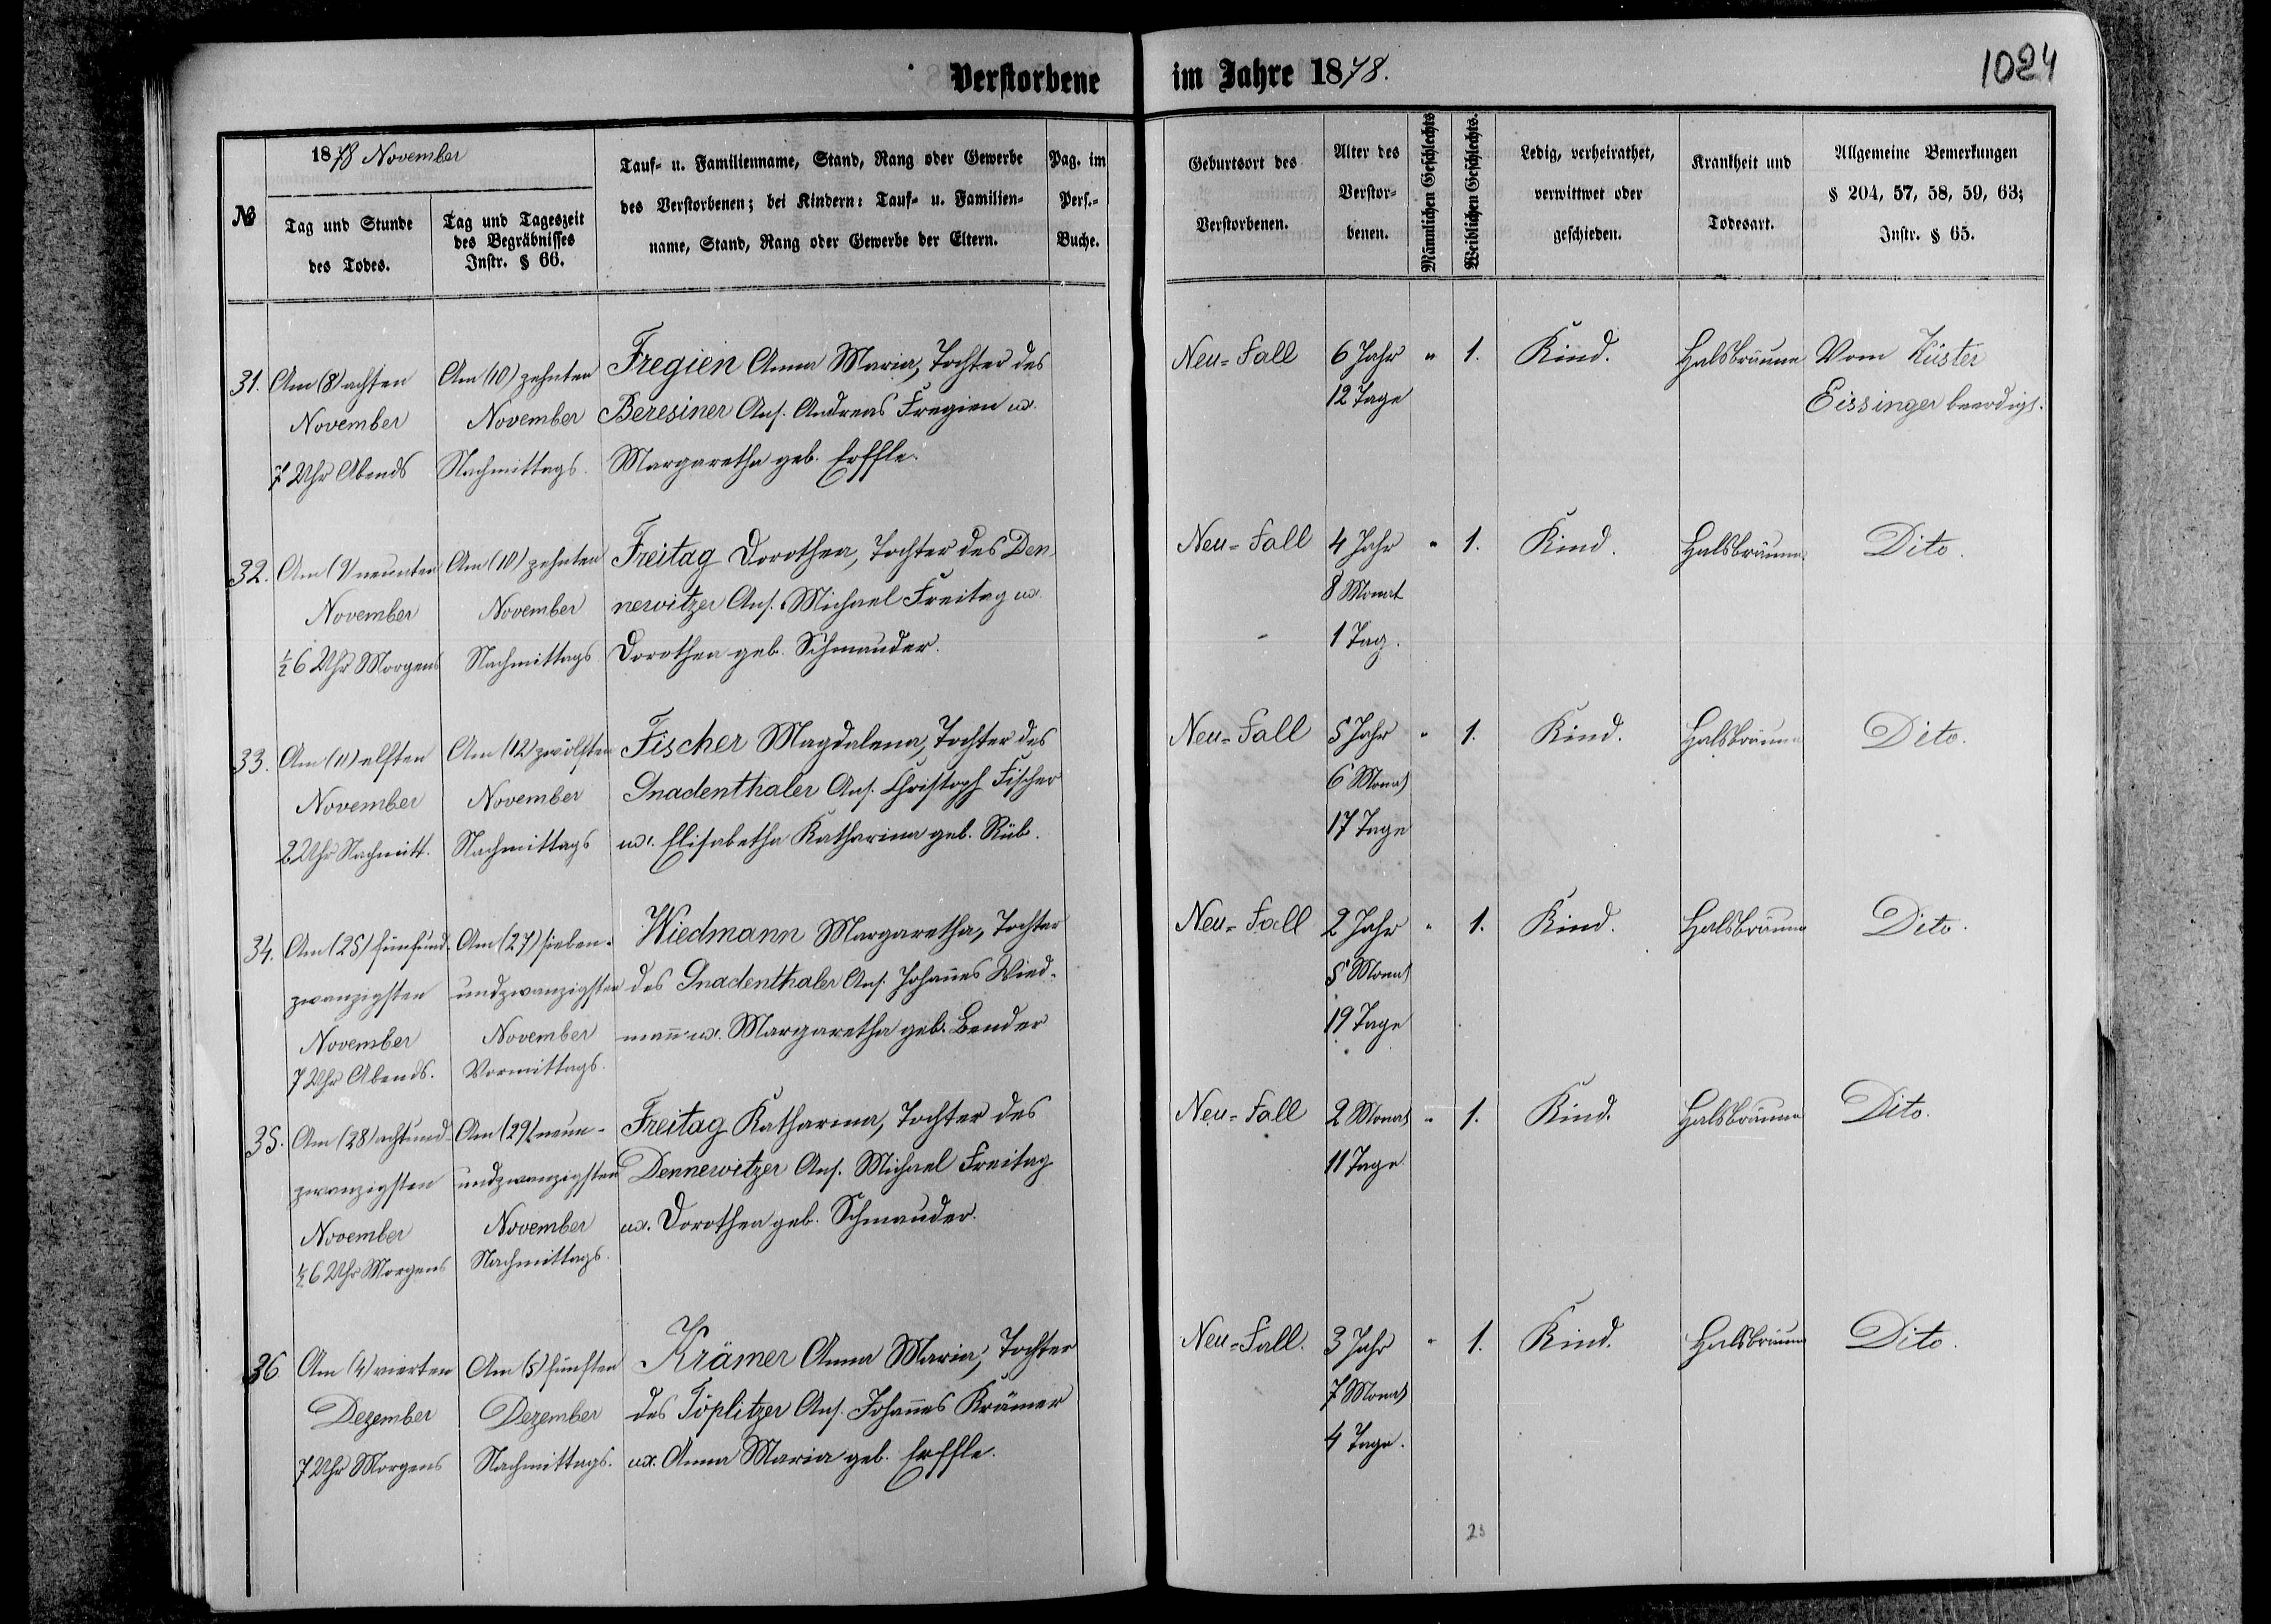 Verstorbene im Jahre 1878.
1024
№
1878 November
Tag und Stunde
des Todes.
Tag und Tageszeit
des Begräbnisses
Instr. § 66.
Tauf- u. Familienname, Stand, Rang oder Gewerbe
des Verstorbenen; bei Kindern: Tauf- u. Familien-
name, Stand, Rang oder Gewerbe der Eltern.
Pag. im
Pers.-
Buche.
Geburtsort des
Verstorbenen.
Alter des
Verstor-
benen.
Männlichen Geschlechts
Weiblichen Geschlechts.
Ledig, verheirathet,
verwittwet oder
geschieden.
Krankheit und
Todesart.
Allgemeine Bemerkungen
§ 204, 57, 58, 59, 63;
Instr. § 65.
31.
Am (8) achten
November
7 Uhr Abends
Am (10) zehnten
November
Nachmittags.
Fregien Anna Maria, Tochter des
Beresiner Ans. Andreas Fregien ux.
Margaretha geb. Erffle.
Neu-Fall
6 Jahr
12 Tage
"
1.
Kind.
Halsbräune
Vom Küster
Eissinger beerdigt.
32.
Am (9) neunten
November
½ 6 Uhr Morgens
Am (10) zehnten
November
Nachmittags
Freitag Dorothea, Tochter des Den-
newitzer Ans. Michael Freitag ux.
Dorothea geb. Schmauder.
Neu-Fall
4 Jahr
8 Monat
1 Tag.
"
1.
Kind.
Halsbräune
Dito.
33.
Am (11) elften
November
2 Uhr Nachmitt.
Am (12) zwölften
November
Nachmittags
Fischer Magdalena, Tochter des
Gnadenthaler Ans. Christoph Fischer
ux. Elisabetha Katharina geb. Rüb.
Neu-Fall
5 Jahr
6 Monat
17 Tage
"
1.
Kind.
Halsbräune
Dito.
34.
Am (25) fünfund-
zwanzigsten
November
7 Uhr Abends.
Am (27) sieben-
undzwanzigsten
November
Vormittags.
Wiedmann Margaretha, Tochter
des Gnadenthaler Ans. Johan̅es Wied-
man̅ ux. Margaretha geb. Bender
Neu-Fall
2 Jahr
5 Monat
19 Tage
"
1.
Kind.
Halsbräune
Dito.
35.
Am (28) achtund
zwanzigsten
November
½ 6 Uhr Morgens
Am (29) neun-
undzwanzigsten
November
Nachmittags.
Freitag Katharina, Tochter des
Dennewitzer Ans. Michael Freitag
ux. Dorothea geb. Schmauder.
Neu-Fall
2 Monat
11 Tage
"
1.
Kind.
Halsbräune
Dito.
36
Am (4) vierten
Dezember
7 Uhr Morgens
Am (5) fünften
Dezember
Nachmittags.
Krämer Anna Maria, Tochter
des Töplitzer Ans. Johan̅es Krämer
ux. Anna Maria geb. Erffle.
Neu-Fall.
3 Jahr
7 Monat
4 Tage.
"
1.
Kind.
Halsbräune
Dito.